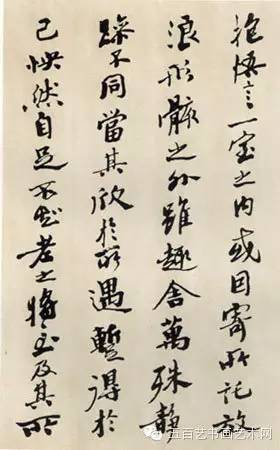 抱悟言一室之内或因寄所托放
浪形骸之外雖趣舍萬殊静
躁不同當其欣於所遇暫得於
己怏然自足不知老之將至及其所
五百艺书画艺术网